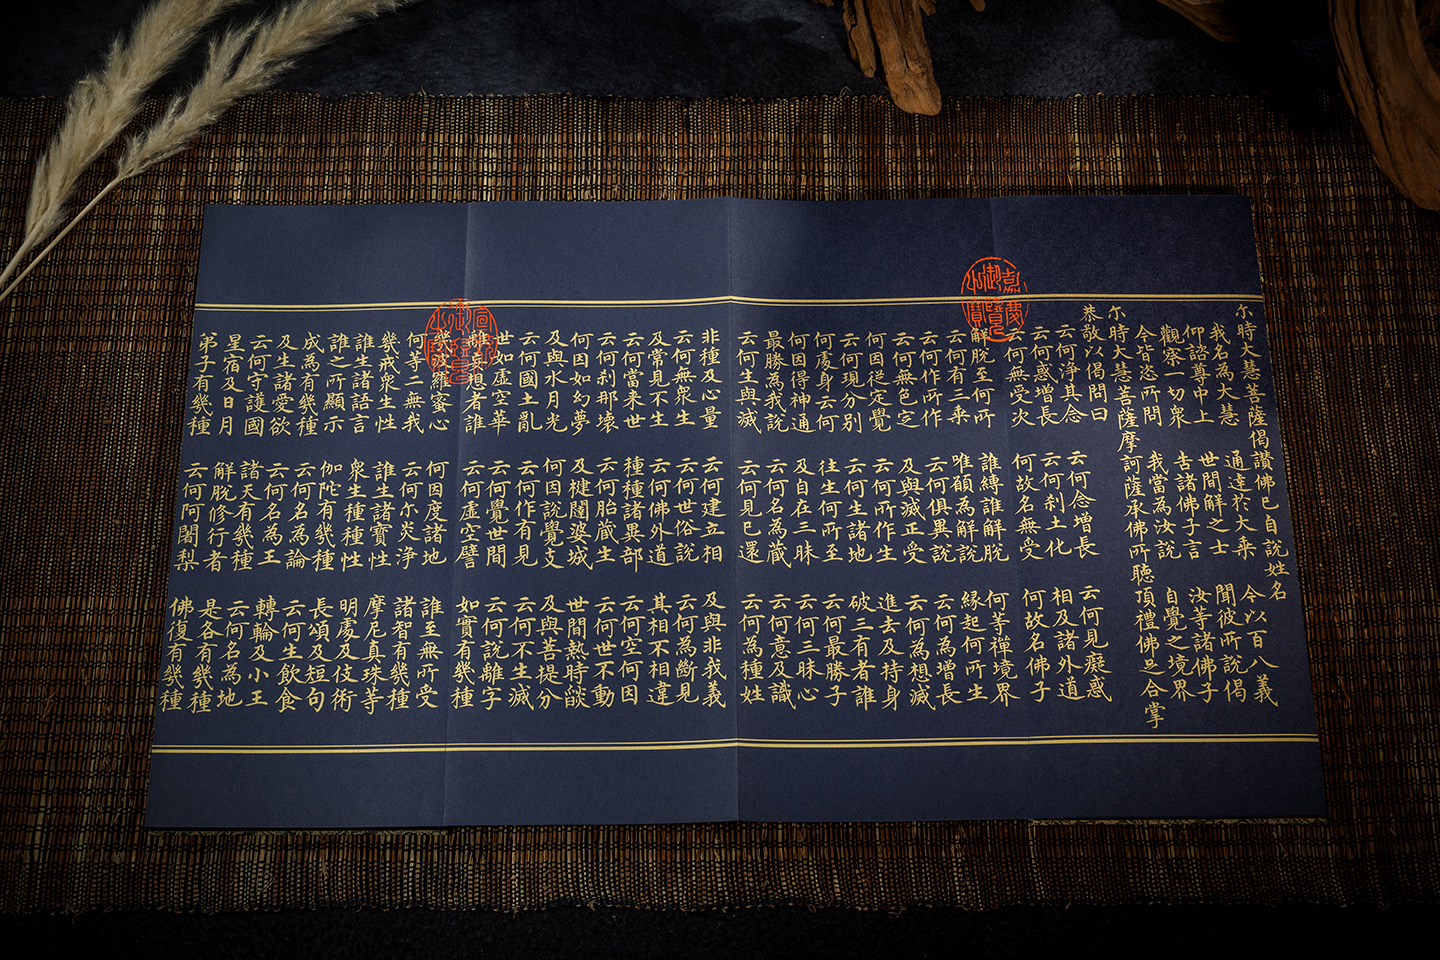 尔時大慧菩薩偈讚佛已自說姓名
我名為大慧 通達於大乘 今以百八義
仰諮尊中上 世間解之士 聞彼所說偈
觀察一切衆 告諸佛子言 汝等諸佛子
今皆恣所問 我當為汝說 自覺之境界
尔時大慧菩薩摩訶薩承佛所聽頂禮佛足合掌
恭敬以偈問曰
云何淨其念 云何念增長 云何見癡惑
云何惑增長 云何刹土化 相及諸外道
云何無受次 何故名無受 何故名佛子
解脫至何所 誰縛誰解脫 何等禪境界
云何有三乘 唯願為解說 緣起何所生
云何作所作 云何俱異說 云何為增長
云何無色定 及與滅正受 云何為想滅
何因從定覺 云何所作生 進去及持身
云何現分別 云何生諸地 破三有者誰
何處身云何 往生何所至 云何最勝子
何因得神通 及自在三昧 云何三昧心
最勝為我說 云何名為藏 云何意及識
云何生與滅 云何見已還 云何為種姓
非種及心量 云何建立相 及與非我義
云何無衆生 云何世俗說 云何為斷見
及常見不生 云何佛外道 其相不相違
云何當来世 種種諸異部 云何空何因
云何刹那壞 云何胎藏生 云何世不動
何因如幻夢 及揵闥婆城 世間熱時燄
及與水月光 何因說覺支 及與菩提分
云何國土亂 云何作有見 云何不生滅
世如虛空華 云何覺世間 云何說離字
離妄想者誰 云何虛空譬 如實有幾種
幾波羅蜜心 何因度諸地 誰至無所受
何等二無我 云何尔炎淨 諸智有幾種
幾戒衆生性 誰生諸寶性 摩尼真珠等
誰生諸語言 衆生種種性 明處及伎術
誰之所顯示 伽陀有幾種 長頌及短句
成為有幾種 云何名為論 云何生飲食
及生諸愛欲 云何名為王 轉輪及小王
云何守護國 諸天有幾種 云何名為地
星宿及日月 解脫修行者 是各有幾種
弟子有幾種 云何阿闍梨 佛復有幾種
嘉慶御覽之寶